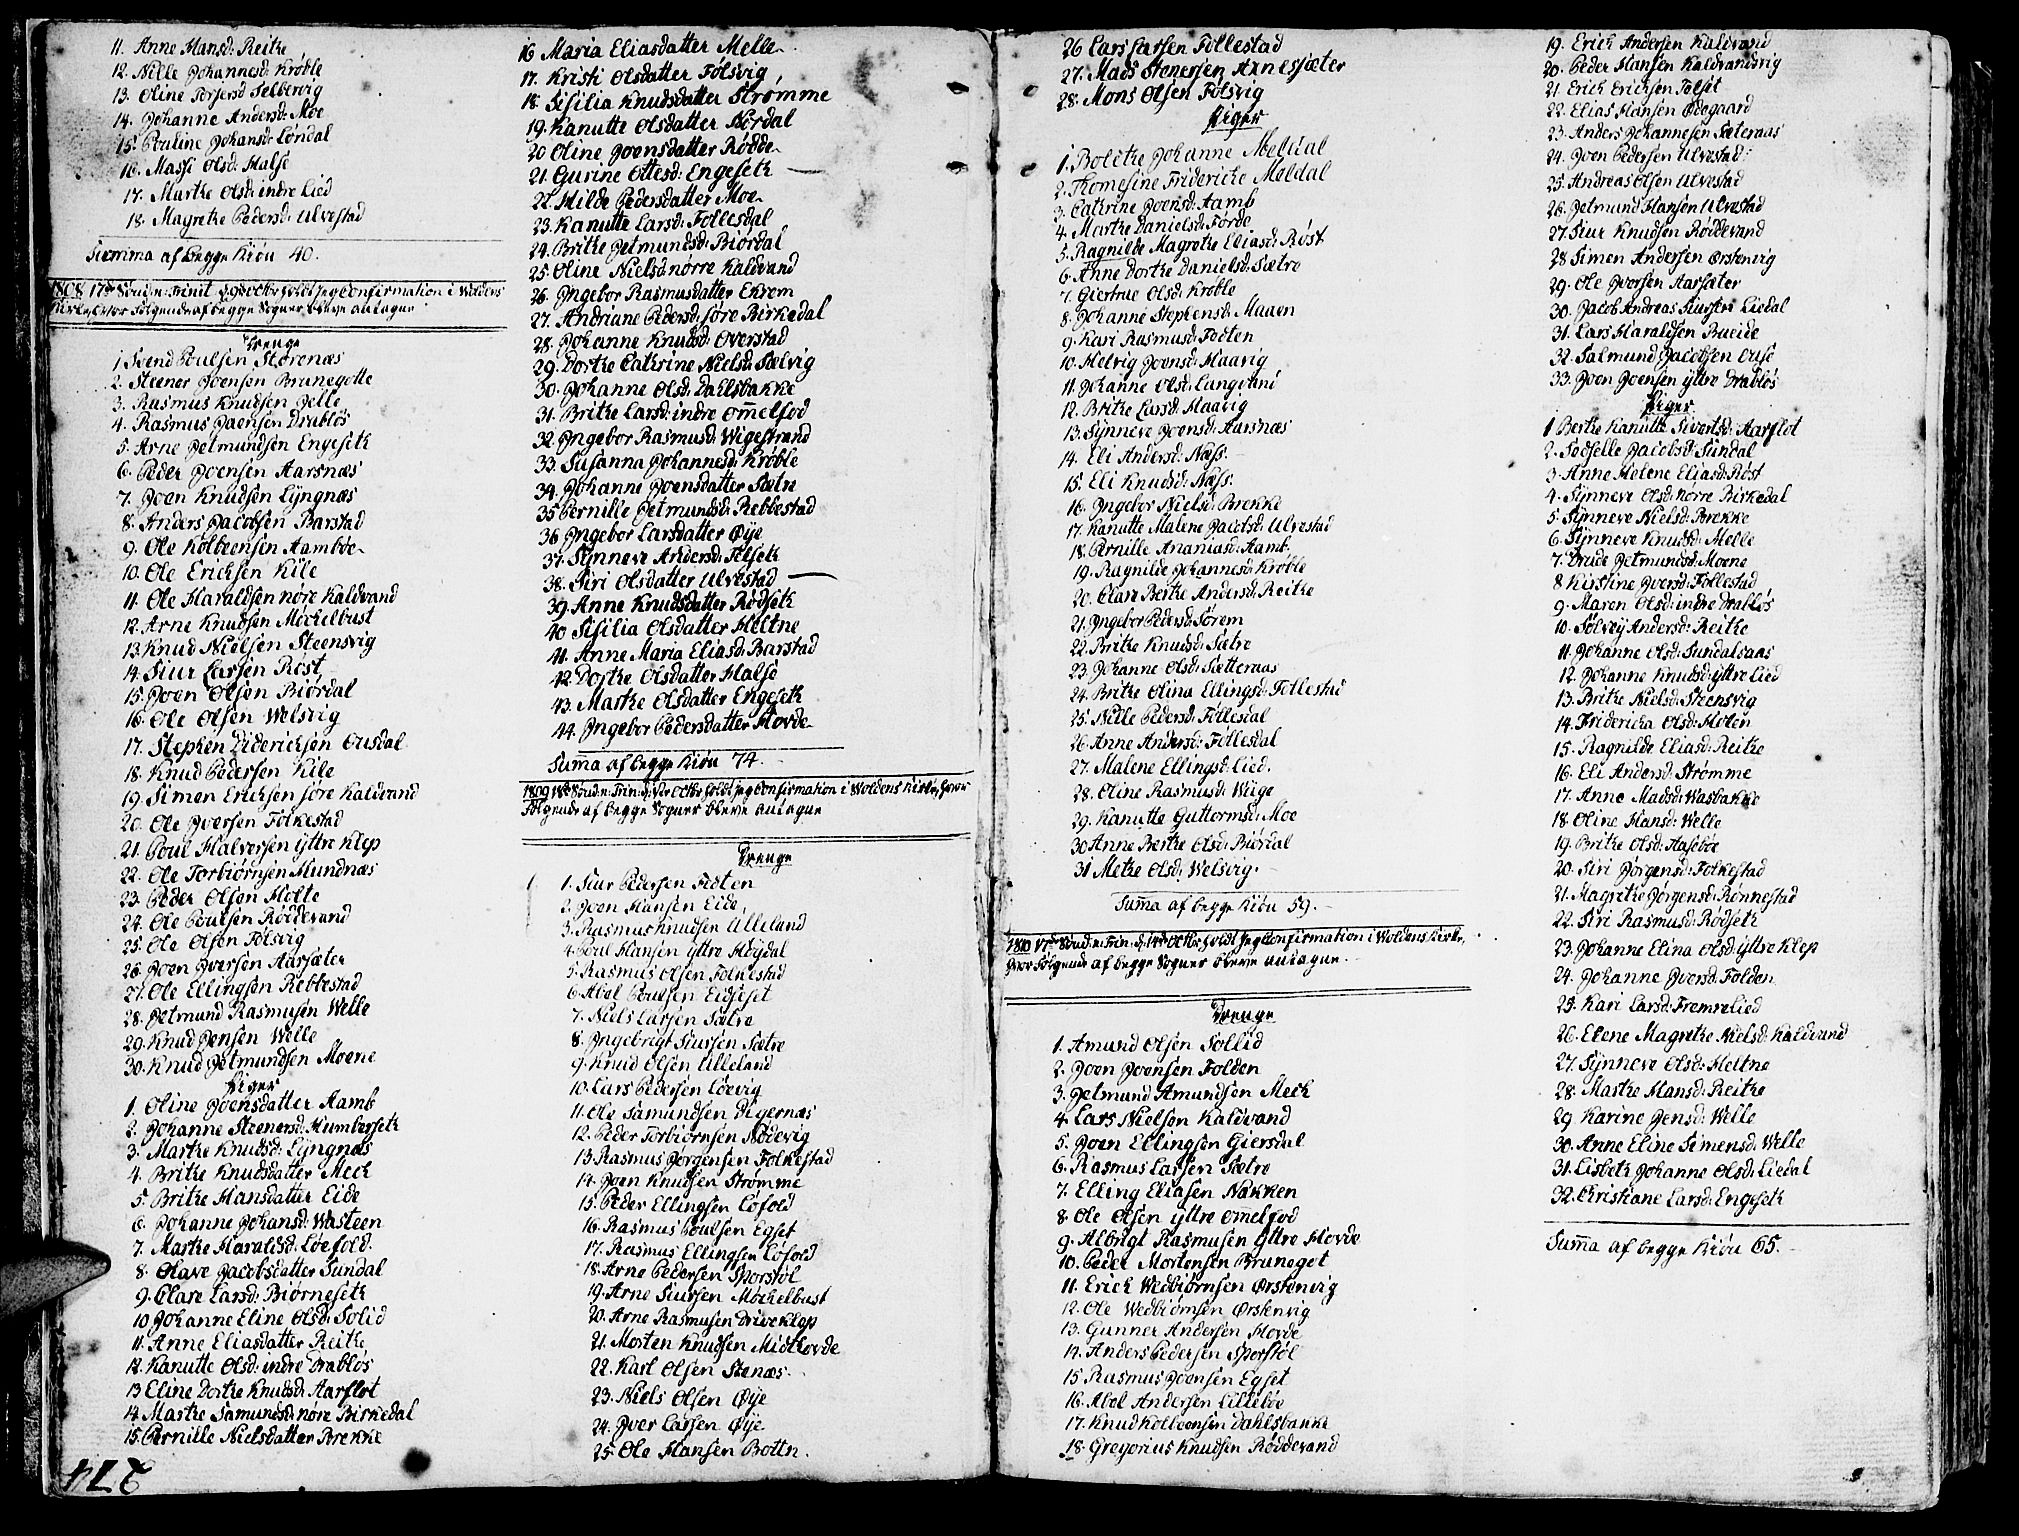 11. Anne Hansd: Reite
12. Nille Johannesd: Krøble
13. Oline Torsersd Selbervig
14. Johanne Andersd: Moe
15. Pouline Johansd: Løndal
16. Massi Olsd: Halse
17. Marthe Olsd: indre Lied
18. Magrethe Pedersd: Ulvestad
Summa af begge Kiøn 40.
1808. 17de Sønd: n: Trinit d. 9de Octbr holdt jeg Confirmation i Woldens
Kirke, hvor følgende af begge Sogner bleve antagne
Drenge
1 Svend Poulsen Storenæs
2. Steener Joensen Brunegotte
3. Rasmus Knudsen Jelle
4. Rasmus Joensen Drabløs
5. Arne Jetmundsen Engeseth
6. Peder Joensen Aarsnæs
7. Joen Knudsen Lyngnæs
8. Anders Jacobsen Barstad
9. Ole Kolbeensen Aamboe
10. Ole Ericksen Kile
11. Ole Haraldsen nøre Kaldvand
12. Arne Knudsen Mochelbust
13. Knud Nielsen Steensvig
14. Siur Larsen Røst
15. Joen Olsen Biørdal
16. Ole Olsen Welsvig
17. Stephen Didericksen Ousdal
18. Knud Pedersen Kile
19. Simen Ericksen søre Kaldvand
20. Ole Iversen Folkestad
21. Poul Halvorsen Yttre Klep
22. Ole Torbiørnsen Mundnæs
23. Peder Olsen Holte
24. Ole Poulsen Røddevand
25. Ole Olsen Folsvig
26. Joen Iversen Aarsæter
27. Ole Ellingsen Rebbestad
28. Jetmund Rasmusen Welle
29. Knud Jensen Welle
30. Knud Jetmundsen Moene
Piger
1. Oline Joensdatter Aamb
2. Johanne Steenersd: Humberseth
3. Marthe Knudsd: Lyngnæs
4. Brithe Knudsdatter Mech
5. Brithe Hansdatter Eide
6. Johanne Johansd: Wasteen
7. Marthe Haraldsd: Løefold.
8. Olave Jacobsdatter Sundal
9. Clare Larsd: Biørneseth
10 Johanne Eline Olsd: Solid
11. Anne Eliasdatter Reithe
12. Kanutte Olsd: indre Drabløs
13 Eline Dorthe Knudsd: Aarfløt
14. Marthe Samunsd: nøre Birkedal
15. Pernille Nielsdatter Brekke
16 Maria Eliasdatter Melle
17. Kristi Olsdatter Følsvig
18. Sisilia Knudsdatter Strømme
19. Kanutte Olsdatter Nordal
20 Oline Joensdatter Rødde
21. Gurine Ottesd: Engeseth
22. Hilde Pedersdatter Moe
23. Kanutte Larsd: Follesdal
24. Brithe Jetmundsd: Biørdal
25. Oline Nielsd: nørre Kaldvand
26. Ingebor Rasmusdatter Ekrem
27. Andriane Pedersd: søre Birkedal
28. Johanne Knudsd: Overstad
29. Dorthe Cathrine Nielsd: Sælvig
30. Johanne Olsd: Dahlsbakke
31. Brithe Larsd: indre Ommelfod
32. Ingebor Rasmusd: Wigestrand
33. Susanna Johannesd: Krøble
34. Johanne Joensdatter Sætre
35 Pernille Jetmundsd: Rebbestad
36. Ingebor Larsdatter Øye
37. Synneve Andersd: Folseth
38. Siri Olsdatter Ulvestad
39. Anne Knudsdatter Rødseth
40 Sisilia Olsdatter Heltne
41. Anne Maria Eliasd: Barstad
42. Dorthe Olsdatter Halse
43. Marthe Olsdatter Engeseth
44. Ingebor Pedersdatter Hovde
Summa af begge Kiøn 74.
1809 18de Sønd: n: Trin: d: 1ste Octbr holdt jeg Confirmation i Woldens Kirke, hvor
følgende af begge Sogner bleve antagne
Drenge
1. Siur Pedersen Fioten
2. Joen Hansen Eide
3. Rasmus Knudsen Lilleland
4. Poul Hansen Yttre Høydal
5. Rasmus Olsen Folkestad
6. Abel Poulsen Eidseset
7. Niels Larsen Sætre
8. Ingebrigt Siursen Sætre
9. Knud Olsen Lilleland
10. Lars Pedersen Løevig
11. Ole Samundsen Digernæs
12. Peder Torbiørnsen Nødevig
13 Rasmus Jørgensen Folkestad
14. Joen Knudsen Strømme
15. Peder Ellingsen Lofold
16. Rasmus Poulsen Egset
17. Rasmus Ellingsen Lofold
18. Arne Pedersen Sporstøl
19. Arne Siursen Møchelbust
20. Arne Rasmusen Driveklep
21. Morten Knudsen Midthovde
22. Karl Olsen Stenæs
23. Niels Olsen Øye
24. Iver Larsen Øye
25. Ole Hansen Bottn.
26 Lars Larsen Follestad
27. Mads Stenersen Arnesæter
28. Mons Olsen Folsvig
Piger
1. Bolethe Johanne Meldal
2. Thomesine Fridericke Meldal
3. Cathrine Joensd: Aamb
4. Marthe Danielsd: Førde
5. Ragnilde Magrethe Eliasd: Røst
6. Anne Dorthe Danielsd: Sætre
7. Giertrue Olsd: Krøble
8. Johanne Stephensd: Maaen
9. Kari Rasmusd: Fioten
10. Helvig Joensd: Haavig
11. Johanne Olsd: Langvand
12. Brithe Larsd: Haavig
13. Synneve Joensd: Aarsnæs
14. Eli Andersd: Næss.
15. Eli Knudsd: Næss.
16. Ingebor Nielsd: Brekke
17. Kanutte Malene Jacobsd: Ulvestad
18. Pernille Ananiasd: Aamb.
19. Ragnilde Johannesd: Krøble
20. Clare Berthe Andersd: Reithe
21. Ingebor Pedersd: Sørem
22. Brithe Knudsd: Sætre
23. Johanne Olsd: Sætteraas
24. Brithe Olina Ellingsd: Follestad
25. Nille Pedersd: Follesdal
26. Anne Andersd: Follesdal
27. Malene Ellingsd: Lied.
28. Oline Rasmusd: Wiige
29. Kanutte Guttormsd: Moe
30 Anne Berthe Olsd: Biørdal
31 Methe Olsd: Welsvig.
Summa af begge Kiøn 59.
1810 17de Sønd: n: Trin: d: 14de Octbr holdt jeg Confirmation i Woldens Kirke,
hvor følgende af begge Sogner bleve antagne.
Drenge
1. Amund Olsen Sollid
2. Joen Joensen Folden
3. Jetmund Amundsen Mech
4. Lars Nielsen Kaldvand
5. Joen Ellingsen Giersdal
6. Rasmus Larsen Sætre
7. Elling Eliasen Nakken
8. Ole Olsen Yttre Ommelfod
9. Albrigt Rasmusen Yttre Hovde
10. Peder Mortensen Bruneget
11. Erich Wedbiørnsen Ørstenvig
12. Ole Wedbiørnsen Ørstenvig
13. Gunner Andersen Hovde
14. Anders Pedersen Sporstøl
15 Rasmus Joensen Egset
16. Abel Andersen Lillebøe
17. Knud Kolbeensen Dahlsbakke
18. Gregorius Knudsen Røddevand
19. Erich Andersen Kaldvand
20. Peder Hansen Kaldvandsvig
21. Erich Ericksen Folset
22. Elias Hansen Ødegaard
23. Anders Johannesen Sæteraas
24. Joen Pedersen Ulvestad
25. Andreas Olsen Ulvestad
26. Jetmund Hansen Ulvestad
27. Siur Knudsen Røddevand
28 Simen Andersen Ørstenvig
29. Ole Iversen Aarsæter
30. Jacob Andreas Siursen Liedal
31. Lars Haraldsen Bueide
32. Salmund Jacobsen Ouse
33. Joen Joensen Yttre Drabløs
Piger
1 Berthe Kanutte Sivertsd: Aarfløt
2. Sodselle Jacobsd: Sundal
3. Anne Helene Eliasd: Røst
4. Synneve Olsd: nørre Birkedal
5. Synneve Nielsd: Brekke
6. Synneve Knudsd: Melle
7. Drude Jetmundsd: Moene
8. Kirstine Iversd: Follestad
9. Maren Olsd: indre Drabløs
10. Solvey Andersd: Reithe
11. Johanne Olsd: Sundalsaas
12. Johanne Knudsd: Yttre Lied
13. Brithe Nielsd: Steensvig
14. Fridericha Olsd: Holen
15. Ragnilde Eliasd: Reithe
16. Eli Andersd: Strømme
17. Anne Madsd: Wasbakke
18. Oline Hansd: Welle
19. Brithe Olsd: Aasebøe
20. Siri Jørgensd: Folkestad
21. Magrethe Jørgensd: Rønnestad
22. Siri Rasmusd: Rødseth
23. Johanne Elina Olsd: Yttre Klep
24. Johanne Iversd: Folden
25. Kari Larsd: Fremre Lied
26. Elene Magrethe Nielsd: Kaldvand
27. Synneve Olsd: Heltne
28. Marthe Hansd: Reithe
29. Karine Jensd: Welle
30. Anne Eline Simensd: Welle
31. Lisbeth Johanne Olsd: Liedal
32. Christiane Larsd: Engseth
Summa af begge Kiøn 65.